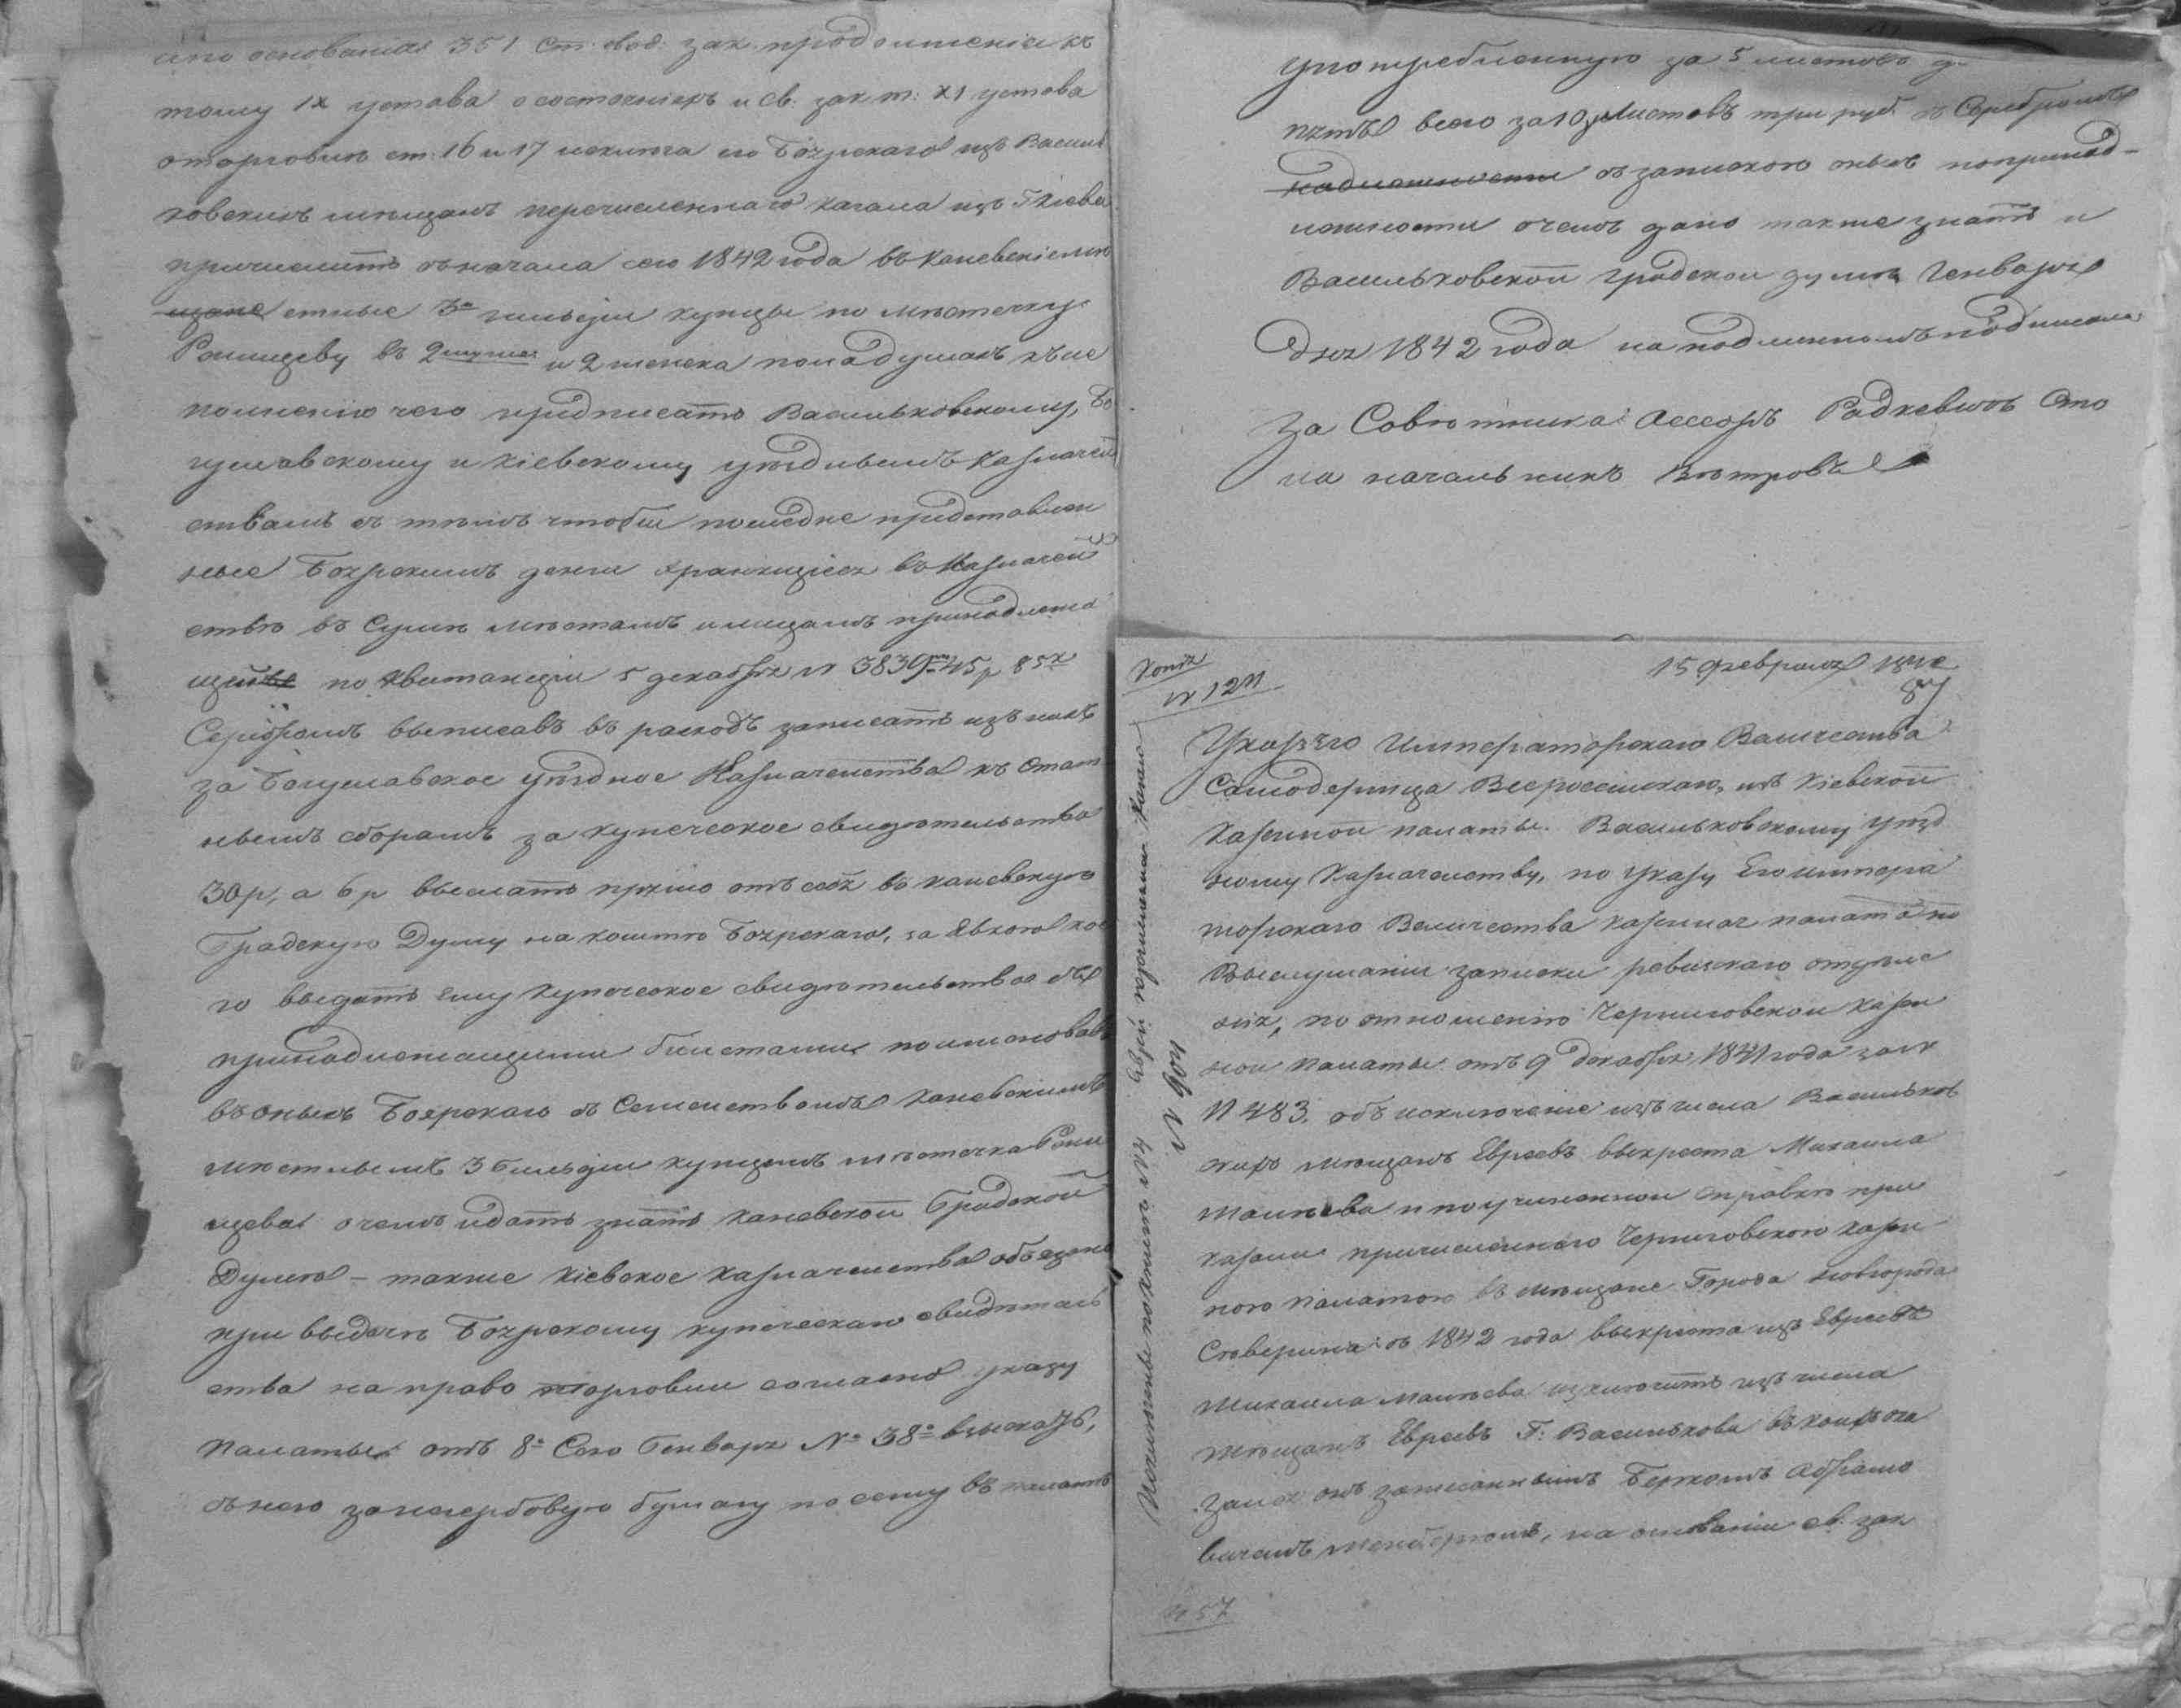 ипо основанія 351 ст: свод: зак: продолженія къ
тому IX устава о состояніяхъ и св: зак. т: XI устава
оторговли ст: 16 и 17 исключа его Боярскаго изъ Василь
ковскихъ мѣщанъ перечисленнаго кагала изъ Гкіева
причислить съ начала сего 1842 года въ каневскіе мѣ
стные 3й гильдіи купцы по мѣстечку
Ронищеву въ 2 мужеска и 2 женска пола душахъ къ ис
полненію чего предписать Васильковскому, Бо
гуславскому и кіевскому уѣзднымъ казначей
ствамъ съ тѣмъ чтобы послѣдне представлен
ные Боярскимъ денги хранящіеся въ казначей
ствѣ въ сумѣ мѣстамъ и лицамъ принадлежа
щей по квитанціи 5 декабря N 3839 45 р 85 к
Серебромъ выписавъ въ расходъ записать изъ нихъ
за Богуславское уѣздное Казначейства къ Стат
нымъ сборамъ за купеческое свидѣтельство
30 р, а 6 р выслать прямо отъ себя въ каневскую
Градскую Думу на коштѣ Боярскаго, за явкою кое
го выдать ему купеческое свидѣтельство съ
принадлежащими билетами поименовавъ
въ оныхъ Боярскаго съ Семействомъ Каневскимъ
мѣстнымъ 3 Гильдіи купцомъ мѣстечка Рони
щева о чемъ и дать знать каневской Градской
Думѣ – также кіевское казначейства обязано
при выдачѣ Боярскому купеческаго свидѣтель
ства на право торговли согласно указу
палаты отъ 8го Сего Генваря № 38го взыскать,
съ него за негербовую бумагу по сему въ палатѣ
употребленную за 5 листовъ д
пять всего за 10 листовъ три руб. въ Серебромъ
съ запискою оныхъ попринад-
лежности о чемъ дано также знать и
Васильковской градской думѣ Генваря
дня 1842 года на подлинномъ подписали
За Совѣтника Асесоръ Радкевичъ Сто
ла начальникъ Вѣтровъ
Копія
N 1211
15 февраля 1842
87
Указъ Его Императорскаго Величества
Самодержца Всероссійскаго, изъ Кіевской
казенной палаты. Васильковскому уѣзд
ному казначейству, по указу Его импера
торскаго Величества казенная палата по
выслушаніи записки ревизскаго отдѣле
нія, по отношенію Черниговской казен
ной палаты отъ 9 декабря 1841 года за N
11483, объ исключеніе изъ числа Васильков
скихъ мѣщанъ Евреевъ выкреста Михаила
и по учиненной справкѣ при
казали причисленнаго Черниговскою казен
ною палатою въ мѣщане Города новгорода
Сѣверска съ 1842 года выкреста изъ Евреевъ
Михаила изключить изъ числа
мѣщанъ Евреевъ Г: Василькова въ коихъ ока
зался онъ записаннымъ Беркомъ Абрамо
вичемъ, на основаніи св. зак
N 901
N 57